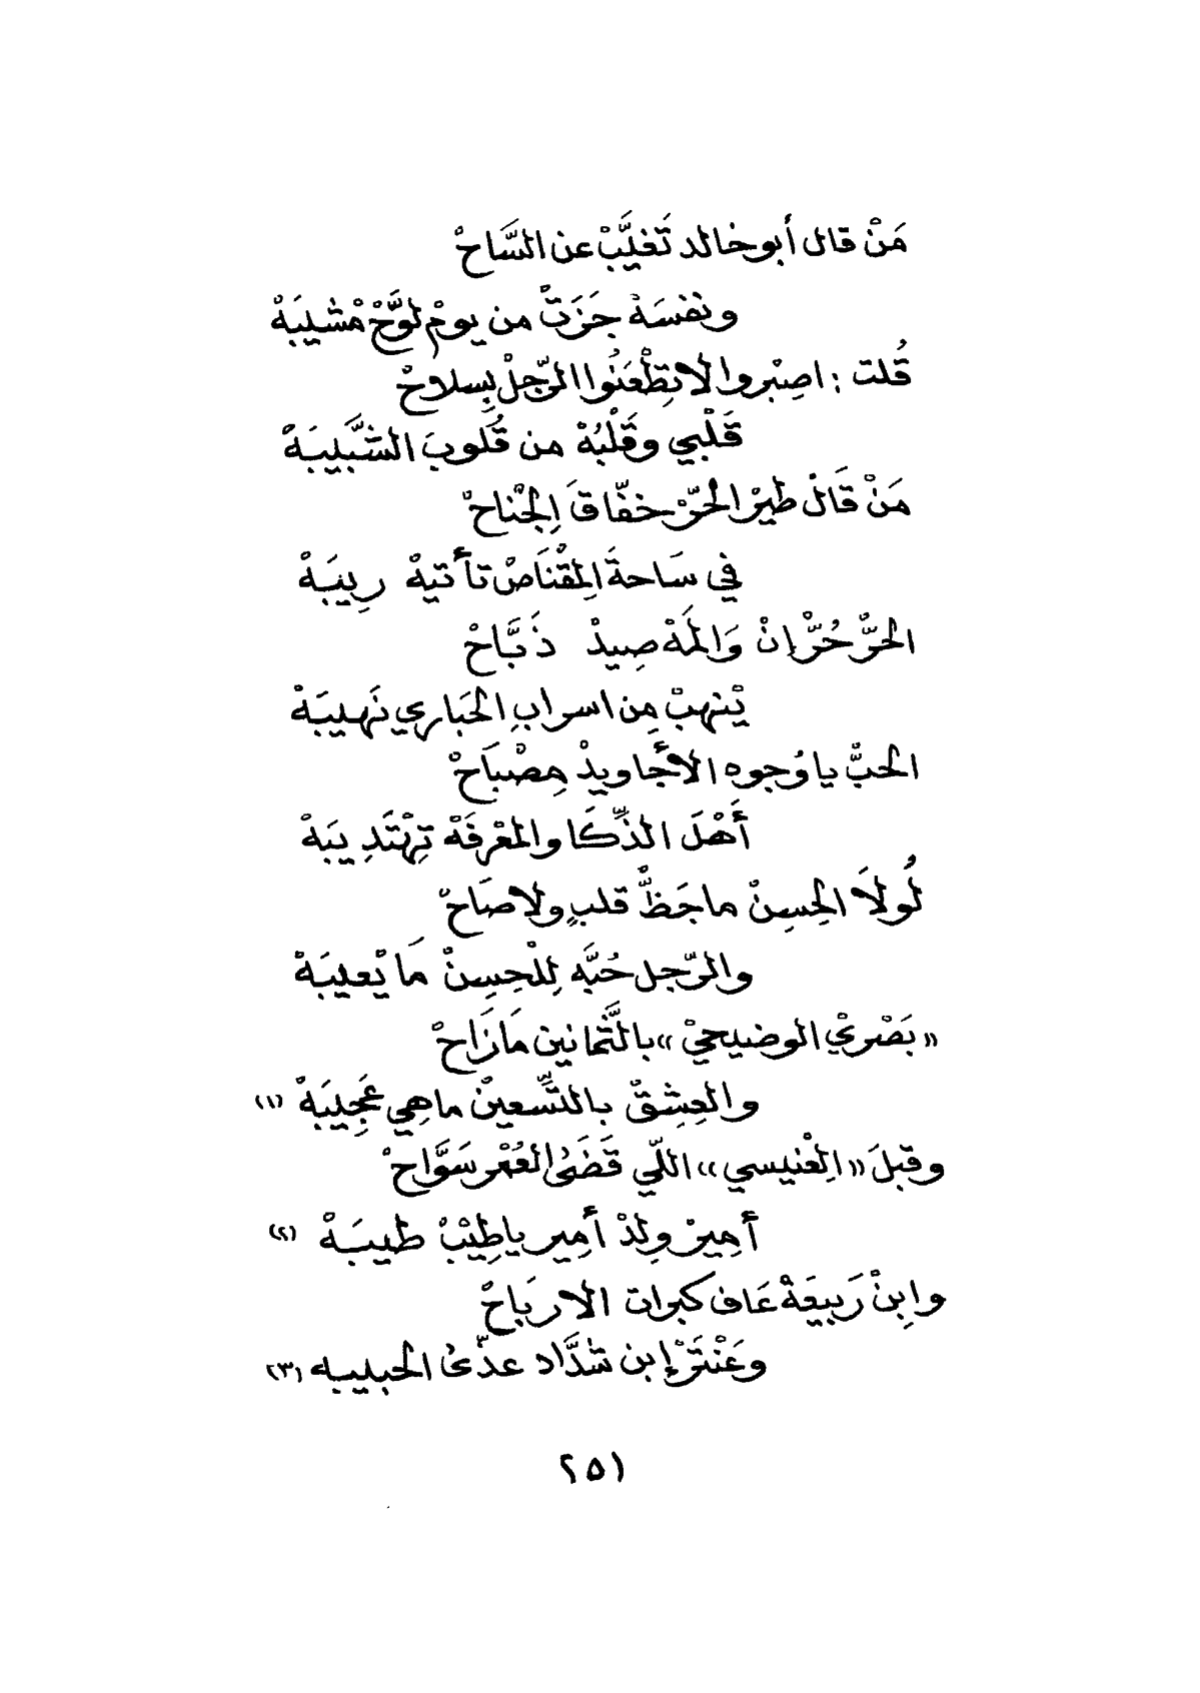 مَنْ قال أبو خالد تَغيَّبْ عن السَّاحْ
ونفسَهْ جَزَتْ من يومْ لوَّحْ مْشيبَهْ
قُلت : اصبْروا لا تِطْعَنُوا الرّجلْ بِسلاحْ
قَلْبي وقَلْبُهْ من قُلوبَ الشَّبيبَهْ
مَنْ قَالْ طيرْ الحرّْ خفّاقَ اِلجْناحْ
في سَاحةَ اِلمقْنَاصْ تأتيهْ رِيبَهْ
الحرّْ حُرّْ إنْ وَالمَهْ صِيدْ ذَبَّاحْ
يْنهبْ مِن اسرابِ الحَباري نَهيبَهْ
الحبّْ يا وُجوه الأجَاويدْ مِصْبَاحْ
أَهْلَ الذّكَا والمعْرفَهْ تِهْتَدِي بَهْ
لُولاَ الحِسِنْ ما حَظّْ قلبٍ ولا صَاحْ
والرّجل حُبَّه لِلْحِسِنْ مَا يْعيبَهْ
« بَصْريْ الوضيحيْ » بالثَّمانين مَازَاحْ
والعِشِقْ بالتّسعينْ ماهِي عَجِيبَهْ (١)
وقبلَ « اِلعْنيسي » اللّي قَضَىْ العُمْر سَوَّاحْ
أمِيرْ وِلِدْ أمِير ياطِيْبْ طيبَهْ (٢)
واِبنْ رَبيعَهْ عَاف كبرات الاربَاحْ
وعَنْتَرْ إبن شَدَّاد عدّىْ الحبيبه (٣)
٢٥١